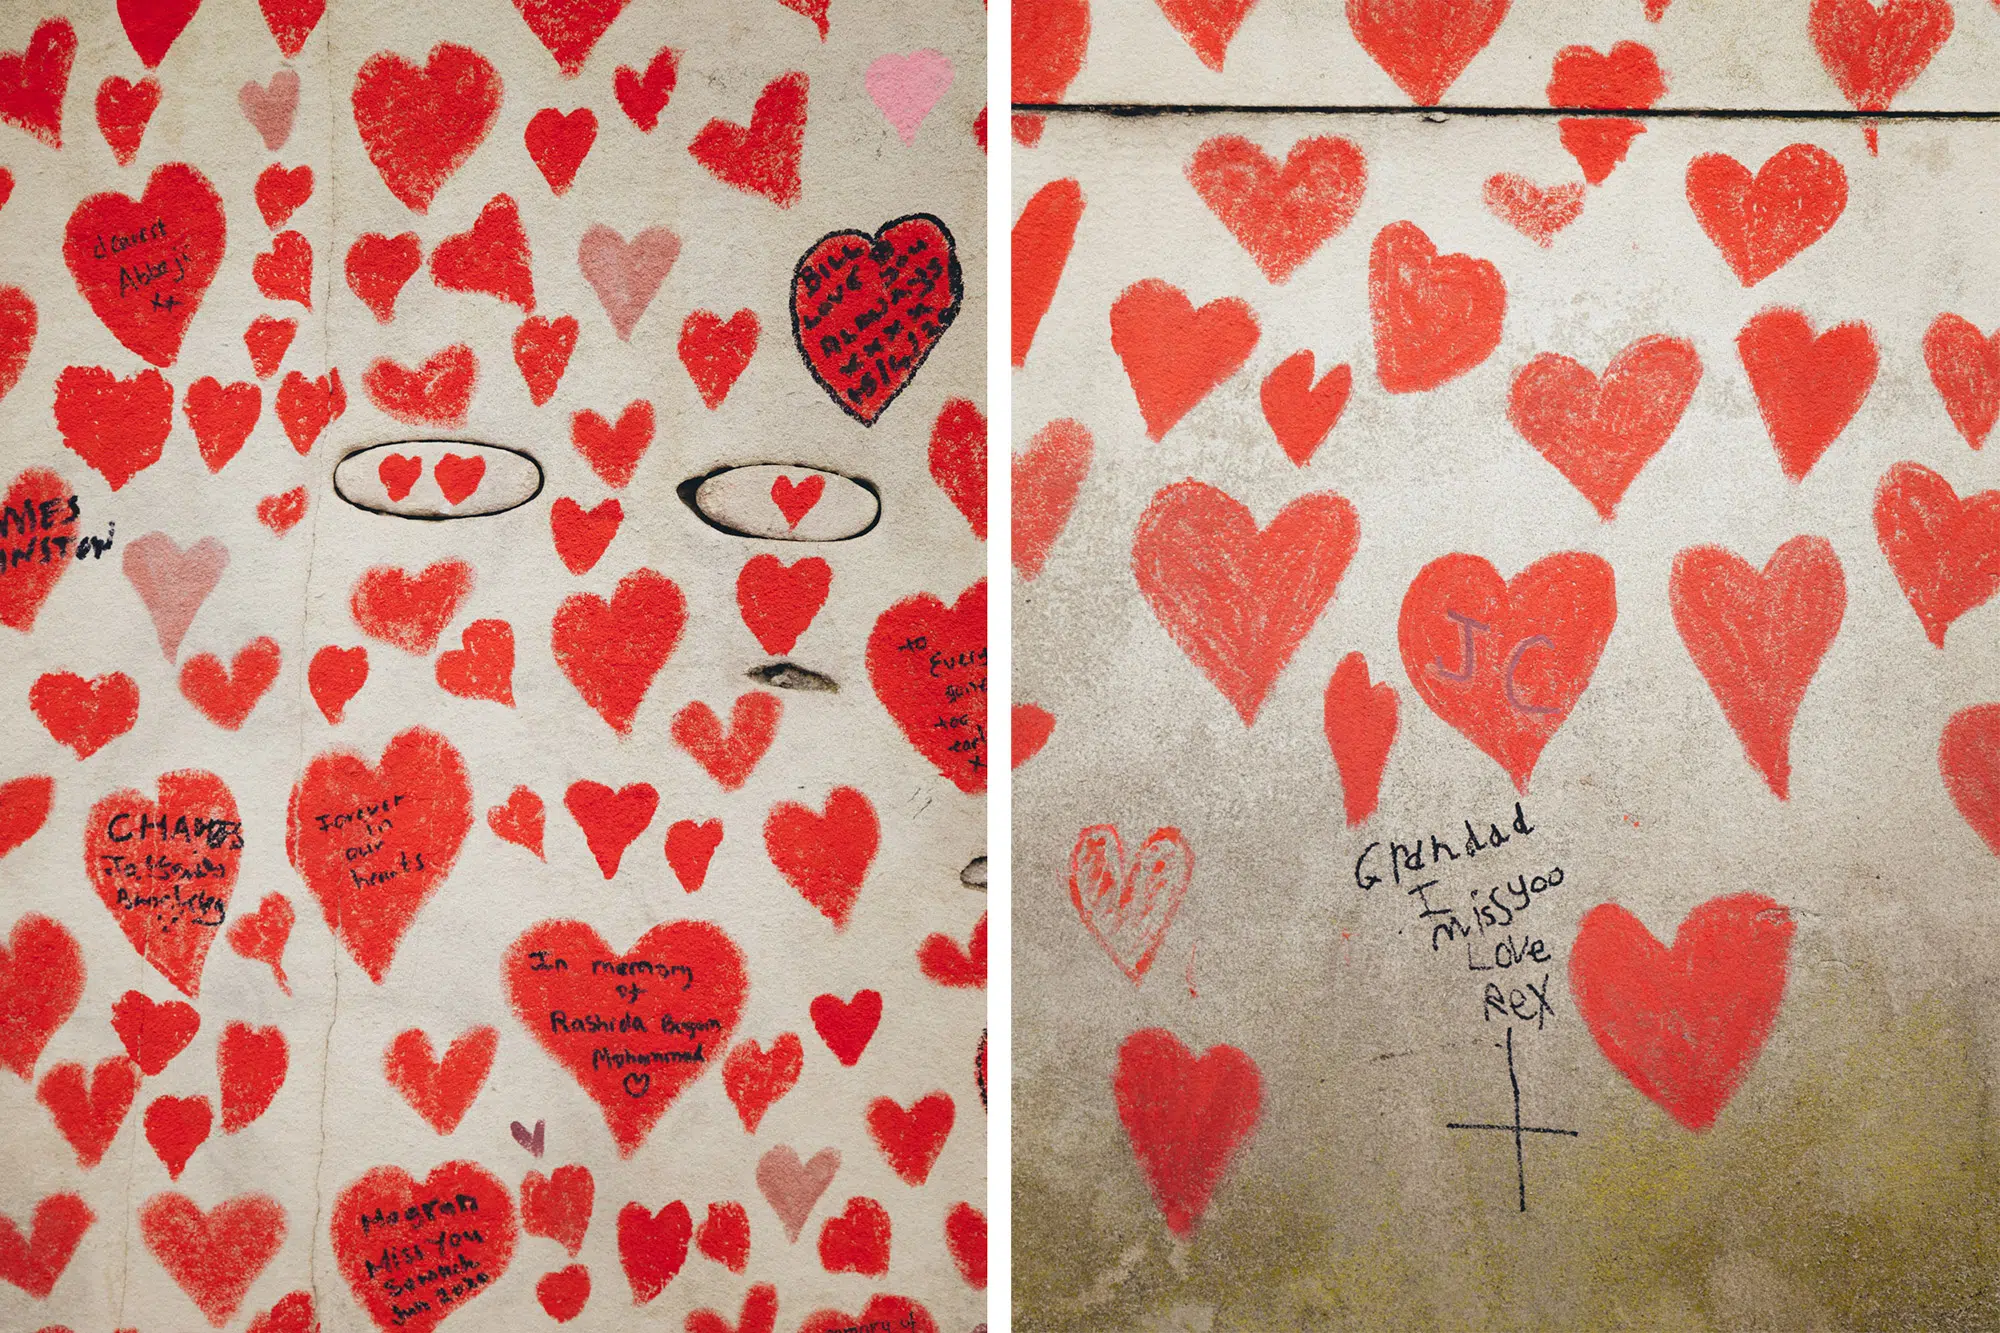 dearest
Abbaji
xx
BILL
LOVE YOU
ALWAYS
XXXX
MES
INSTON
to
Every
gone
too
earl
x
CHA
Forever
in
our
hearts
In memory
of
Rashida Begum
Mohammad
Miss You
Jun 2020
mory of
JC
Grandad
I
missyoo
Love
Rex